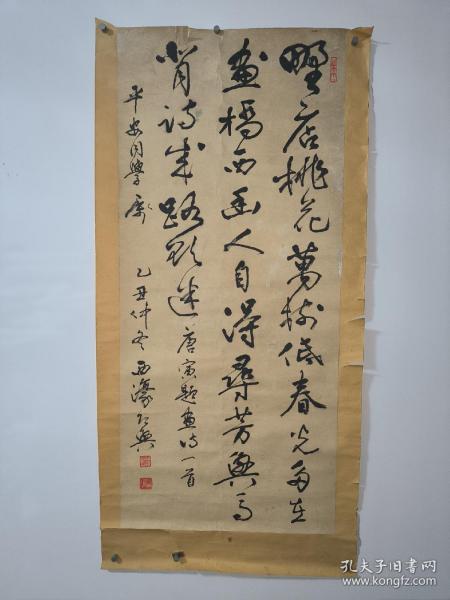 野店桃花萬樹低春光多在
畫橋西幽人自得尋芳興馬
背詩成路欲迷唐寅題畫詩一首
平安同學屬
乙丑仲冬西濠仁興
孔夫子旧书网
www.kongfz.com